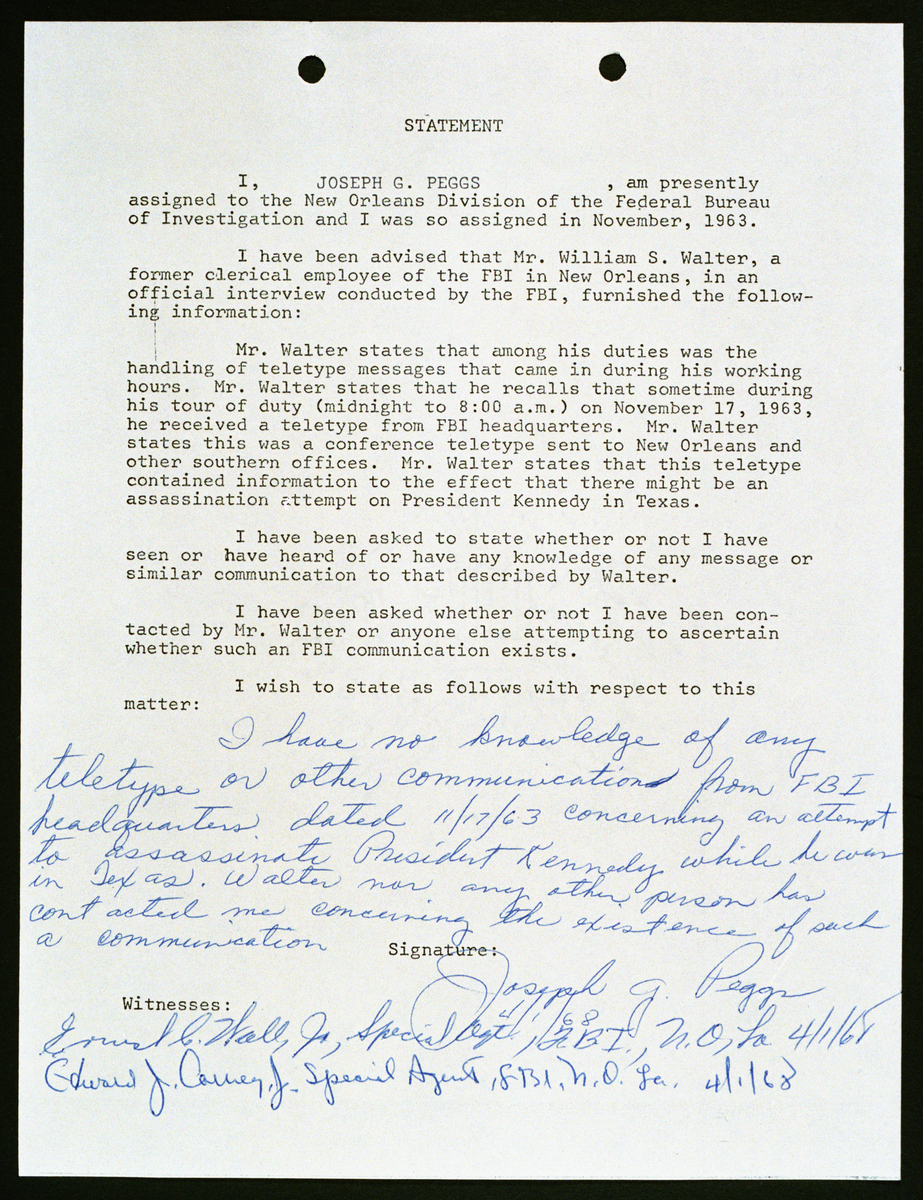 STATEMENT
I, JOSEPH G. PEGGS , am presently
assigned to the New Orleans Division of the Federal Bureau
of Investigation and I was so assigned in November, 1963.
I have been advised that Mr. William S. Walter, a
former clerical employee of the FBI in New Orleans, in an
official interview conducted by the FBI, furnished the follow-
ing information:
Mr. Walter states that among his duties was the
handling of teletype messages that came in during his working
hours. Mr. Walter states that he recalls that sometime during
his tour of duty (midnight to 8:00 a.m.) on November 17, 1963,
he received a teletype from FBI headquarters. Mr. Walter
states this was a conference teletype sent to New Orleans and
other southern offices. Mr. Walter states that this teletype
contained information to the effect that there might be an
assassination attempt on President Kennedy in Texas.
I have been asked to state whether or not I have
seen or have heard of or have any knowledge of any message or
similar communication to that described by Walter.
I have been asked whether or not I have been con-
tacted by Mr. Walter or anyone else attempting to ascertain
whether such an FBI communication exists.
I wish to state as follows with respect to this
matter:
I have no knowledge of any
teletype or other communication from FBI
headquarters dated 11/17/63 concerning an attempt
to assassinate President Kennedy while he was
in Texas. Walter nor any other person has
contacted me concerning the existence of such
a communication
Signature:
Joseph G. Peggs
Witnesses:
Ernest C. Wall, Jr., Special Agt., FBI, N.O., La 4/1/68
Edward J. Carney, Jr. Special Agent, FBI, N.O. La. 4/1/68